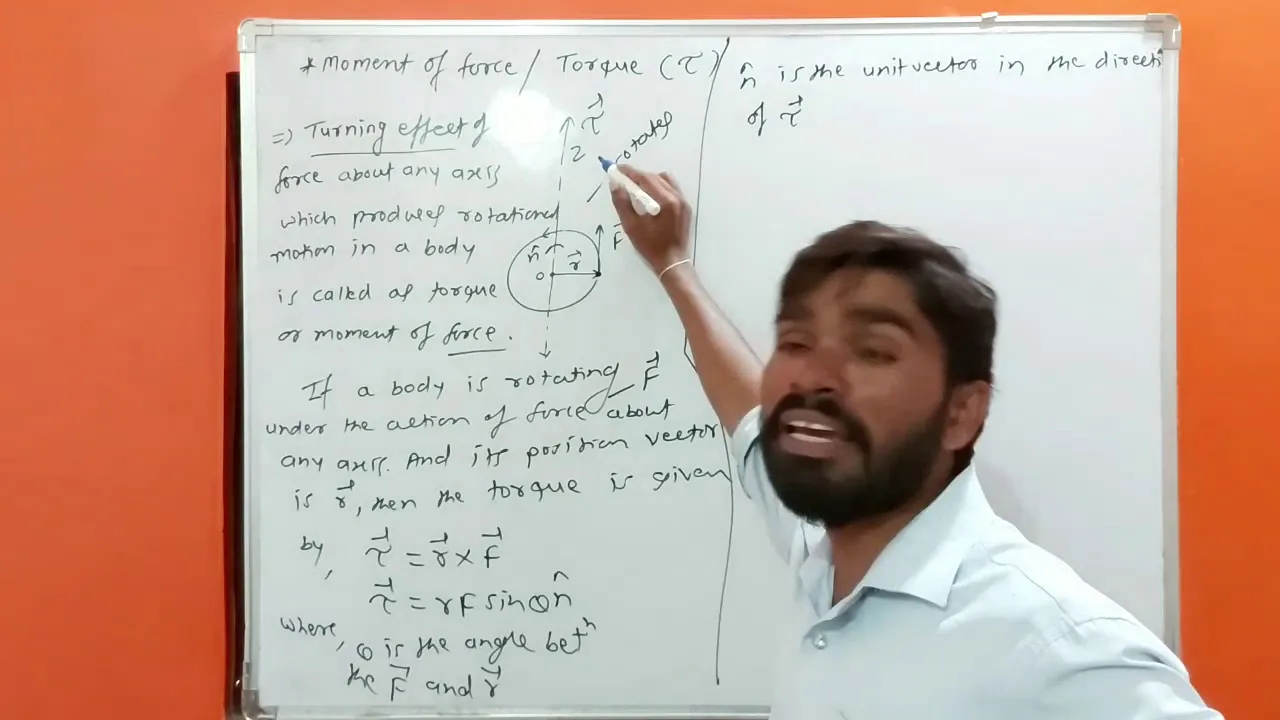 * Moment of force / Torque (τ)
=) Turning effect of
force about any axis
which produces rotational
motion in a body
is called as torque
or moment of force.
τ⃗
z
rotates
F⃗
n̂
r⃗
O
If a body is rotating
under the action of force F⃗ about
any axis. And its position vector
is r⃗, then the torque is given
by,
τ⃗ = r⃗ × F⃗
τ⃗ = rF sinθ n̂
where, θ is the angle betⁿ
the F⃗ and r⃗
n̂ is the unit vector in the directi
of τ⃗